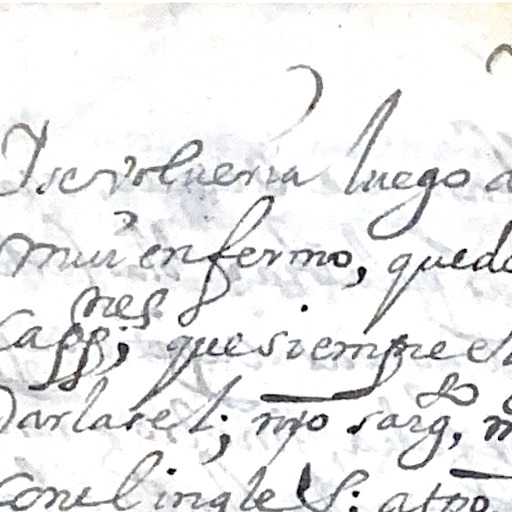 Y se volueria luego a
mui enfermo, quedo
capp.nes; que siempre el
Darlasel; nro sarg.to,
con el ingles: atpo